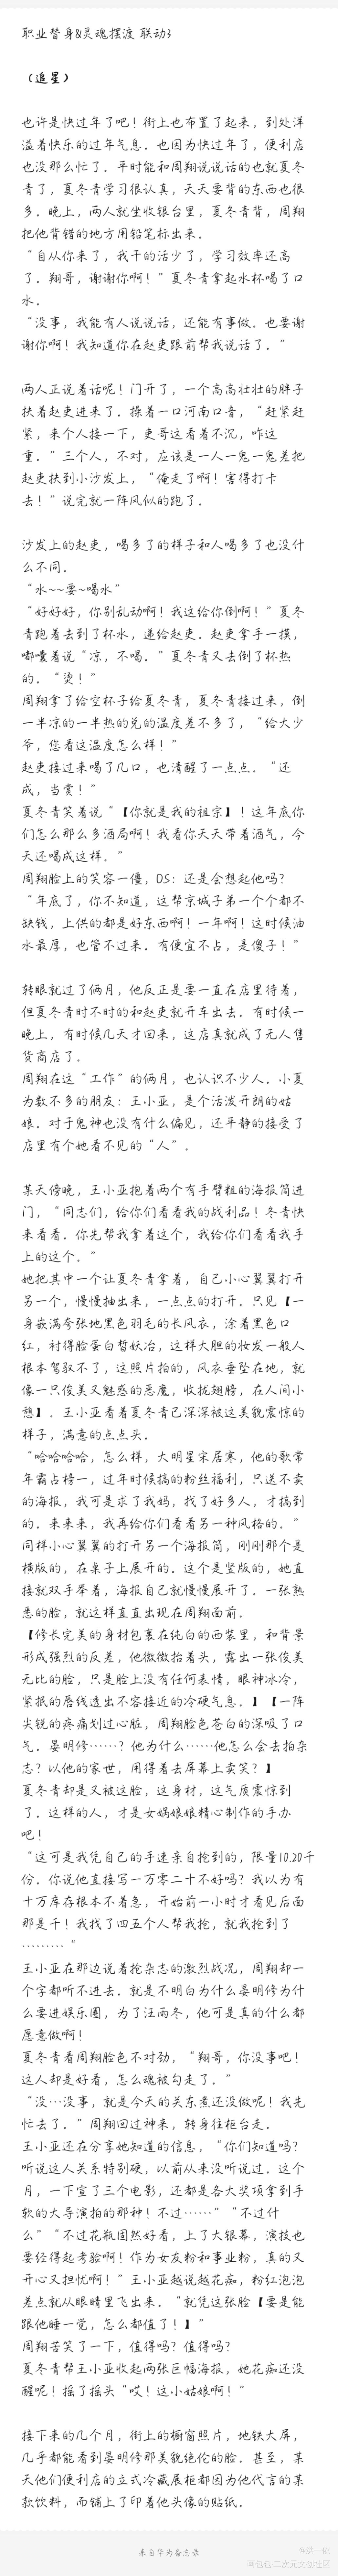 职业替身&灵魂摆渡 联动3
（追星）
也许是快过年了吧！街上也布置了起来，到处洋
溢着快乐的过年气息．也因为快过年了，便利店
也没那么忙了．平时能和周翔说说话的也就夏冬
青了，夏冬青学习很认真，天天要背的东西也很
多．晚上，两人就坐收银台里，夏冬青背，周翔
把他背错的地方用铅笔标出来．
“自从你来了，我干的活少了，学习效率还高
了．翔哥，谢谢你啊！”夏冬青拿起水杯喝了口
水．
“没事，我能有人说说话，还能有事做．也要谢
谢你啊！我知道你在赵吏跟前帮我说话了．”
两人正说着话呢！门开了，一个高高壮壮的胖子
扶着赵吏进来了．操着一口河南口音，“赶紧赶
紧，来个人接一下，吏哥这看着不沉，咋这
重．”三个人，不对，应该是一人一鬼一鬼差把
赵吏扶到小沙发上，“俺走了啊！害得打卡
去！”说完就一阵风似的跑了．
沙发上的赵吏，喝多了的样子和人喝多了也没什
么不同．
“水~~要~喝水”
“好好好，你别乱动啊！我这给你倒啊！”夏冬
青跑着去到了杯水，递给赵吏．赵吏拿手一摸，
嘟囔着说“凉，不喝．”夏冬青又去倒了杯热
的．“烫！”
周翔拿了给空杯子给夏冬青，夏冬青接过来，倒
一半凉的一半热的兑的温度差不多了，“给大少
爷，您看这温度怎么样！”
赵吏接过来喝了几口，也清醒了一点点．“还
成，当赏！”
夏冬青笑着说“【你就是我的祖宗】！这年底你
们怎么那么多酒局啊！我看你天天带着酒气，今
天还喝成这样．”
周翔脸上的笑容一僵，OS：还是会想起他吗？
“年底了，你不知道，这帮京城子弟一个个都不
缺钱，上供的都是好东西啊！一年啊！这时候油
水最厚，也管不过来．有便宜不占，是傻子！”
转眼就过了俩月，他反正是要一直在店里待着，
但夏冬青时不时的和赵吏就开车出去．有时候一
晚上，有时候几天才回来，这店真就成了无人售
货商店了．
周翔在这“工作”的俩月，也认识不少人．小夏
为数不多的朋友：王小亚，是个活泼开朗的姑
娘．对于鬼神也没有什么偏见，还平静的接受了
店里有个她看不见的“人”．
某天傍晚，王小亚抱着两个有手臂粗的海报筒进
门，“同志们，给你们看看我的战利品！冬青快
来看看．你先帮我拿着这个，我给你们看看我手
上的这个．”
她把其中一个让夏冬青拿着，自己小心翼翼打开
另一个，慢慢抽出来，一点点的打开．只见【一
身嵌满夸张地黑色羽毛的长风衣，涂着黑色口
红，衬得脸蛋白皙妖冶，这样大胆的妆发一般人
根本驾驭不了，这照片拍的，风衣垂坠在地，就
像一只俊美又魅惑的恶魔，收拢翅膀，在人间小
憩】．王小亚看着夏冬青已深深被这美貌震惊的
样子，满意的点点头．
“哈哈哈哈，怎么样，大明星宋居寒，他的歌常
年霸占榜一，过年时候搞的粉丝福利，只送不卖
的海报，我可是求了我妈，找了好多人，才搞到
的．来来来，我再给你们看看另一种风格的．”
同样小心翼翼的打开另一个海报筒，刚刚那个是
横版的，在桌子上展开的．这个是竖版的，她直
接就双手举着，海报自己就慢慢展开了．一张熟
悉的脸，就这样直直出现在周翔面前．
【修长完美的身材包裹在纯白的西装里，和背景
形成强烈的反差，他微微抬着头，露出一张俊美
无比的脸，只是脸上没有任何表情，眼神冰冷，
紧抿的唇线透出不容接近的冷硬气息．】【一阵
尖锐的疼痛划过心脏，周翔脸色苍白的深吸了口
气．晏明修……？他为什么……他怎么会去拍杂
志？以他的家世，用得着去屏幕上卖笑？】
夏冬青却是又被这脸，这身材，这气质震惊到
了．这样的人，才是女娲娘娘精心制作的手办
吧！
“这可是我凭自己的手速亲自抢到的，限量10.20千
份．你说他直接写一万零二十不好吗？我以为有
十万库存根本不着急，开始前一小时才看见后面
那是千！我找了四五个人帮我抢，就我抢到了
………“
王小亚在那边说着抢杂志的激烈战况，周翔却一
个字都听不进去．就是不明白为什么晏明修为什
么要进娱乐圈，为了汪雨冬，他可是真的什么都
愿意做啊！
夏冬青看周翔脸色不对劲，“翔哥，你没事吧！
这人却是好看，怎么魂被勾走了．”
“没…没事，就是今天的关东煮还没做呢！我先
忙去了．”周翔回过神来，转身往柜台走．
王小亚还在分享她知道的信息，“你们知道吗？
听说这人关系特别硬，以前从来没听说过．这个
月，一下宣了三个电影，还都是各大奖项拿到手
软的大导演拍的那种！不过……”“不过什
么”“不过花瓶固然好看，上了大银幕，演技也
要经得起考验啊！作为女友粉和事业粉，真的又
开心又担忧啊！”王小亚越说越花痴，粉红泡泡
差点就从眼睛里飞出来．“就凭这张脸【要是能
跟他睡一觉，怎么都值了！】”
周翔苦笑了一下，值得吗？值得吗？
夏冬青帮王小亚收起两张巨幅海报，她花痴还没
醒呢！摇了摇头“哎！这小姑娘啊！”
接下来的几个月，街上的橱窗照片，地铁大屏，
几乎都能看到晏明修那美貌绝伦的脸．甚至，某
天他们便利店的立式冷藏展柜都因为他代言的某
款饮料，而铺上了印着他头像的贴纸．
来自华为备忘录